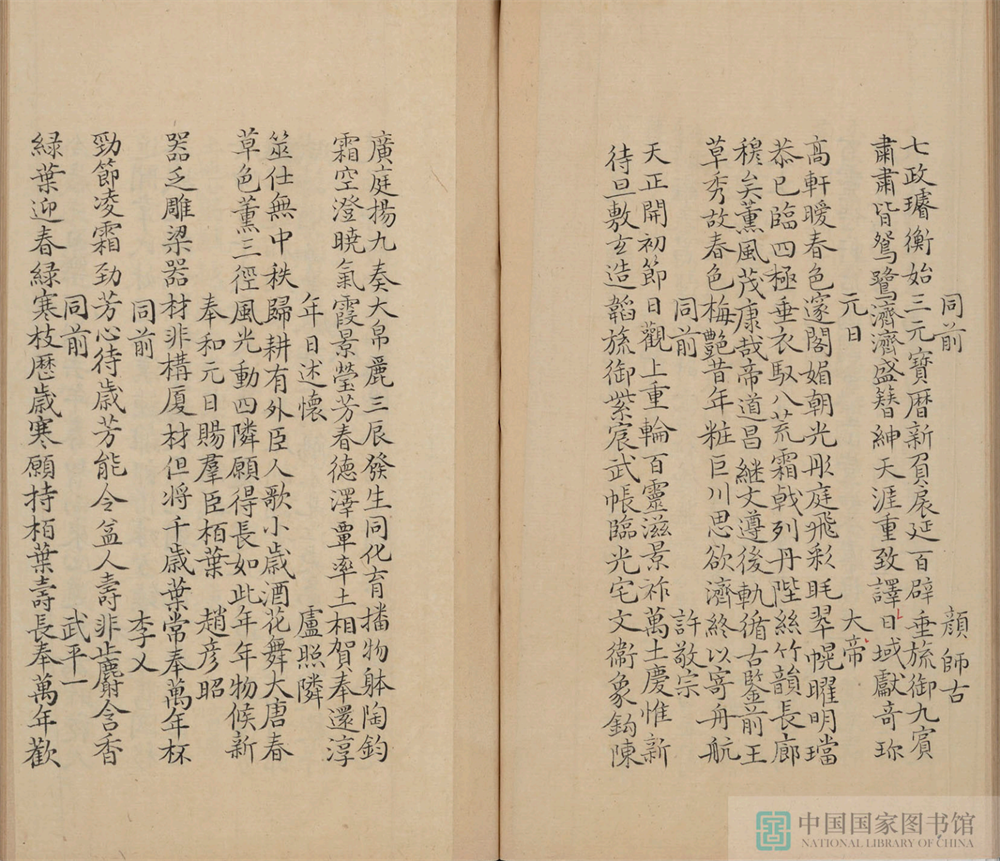 同前 顏師古
七政璿衡始三元寶曆新負扆延百辟垂旒御九賓
肅肅皆鴛鷺濟濟盛簪紳天涯重致譯日域獻奇珎
元日 大帝
高軒曖春色邃閣媚朝光彤庭飛彩眊翠幌曜明璫
恭已臨四極垂衣馭八荒霜戟列丹陛絲竹韻長廊
穆矣薰風茂康哉帝道昌継文遵後軌循古鑒前王
草秀故春色梅艷昔年粧巨川思欲濟終以寄舟航
同前 許敬宗
天正開初節日觀上重輪百靈滋景祚萬土慶惟新
待旦敷玄造韜旒御紫宸武帳臨光宅文衞象鈎陳
廣庭揚九奏大帛麗三辰發生同化育播物躰陶鈞
霜空澄曉氣霞景瑩芳春德澤覃率土相賀奉還淳
年日述懷 盧照隣
筮仕無中秩歸耕有外臣人歌小歳酒花舞大唐春
草色薰三徑風光動四隣願得長如此年年物候新
奉和元日賜羣臣栢葉 趙彥昭
器乏雕梁器材非構厦材但将千歳葉常奉萬年杯
同前 李乂
勁節凌霜勁芳心待歳芳能令益人壽非止麝含香
同前 武平一
緑葉迎春緑寒枝歷歳寒願持栢葉壽長奉萬年歡
中国国家图书馆
NATIONAL LIBRARY OF CHINA